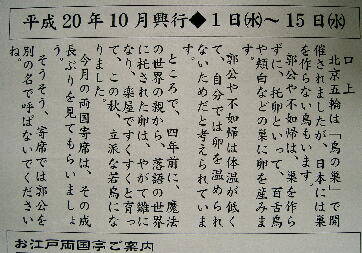 平成20年10月興行◆1日㈬～15日㈬
口上
北京五輪は「鳥の巣」で開
催されましたが、日本には巣
を作らない鳥もいます。
郭公や不如帰は、巣を作ら
ずに、托卵といって、百舌鳥
や頬白などの巣に卵を産みま
す。
郭公や不如帰は体温が低く
て、自分では卵を温められ
ないためだと考えられていま
す。
ところで、四年前に、魔法
の世界の親から、落語の世界
に托された卵は、やがて雛に
なり、楽屋ですくすくと育っ
て、この秋、立派な若鳥にな
りました。
今月の両国寄席は、その成
長ぶりを見てもらいましょ
う。
そうそう、寄席では郭公を
別の名で呼ばないでください
ね。
お江戸両国亭ご案内